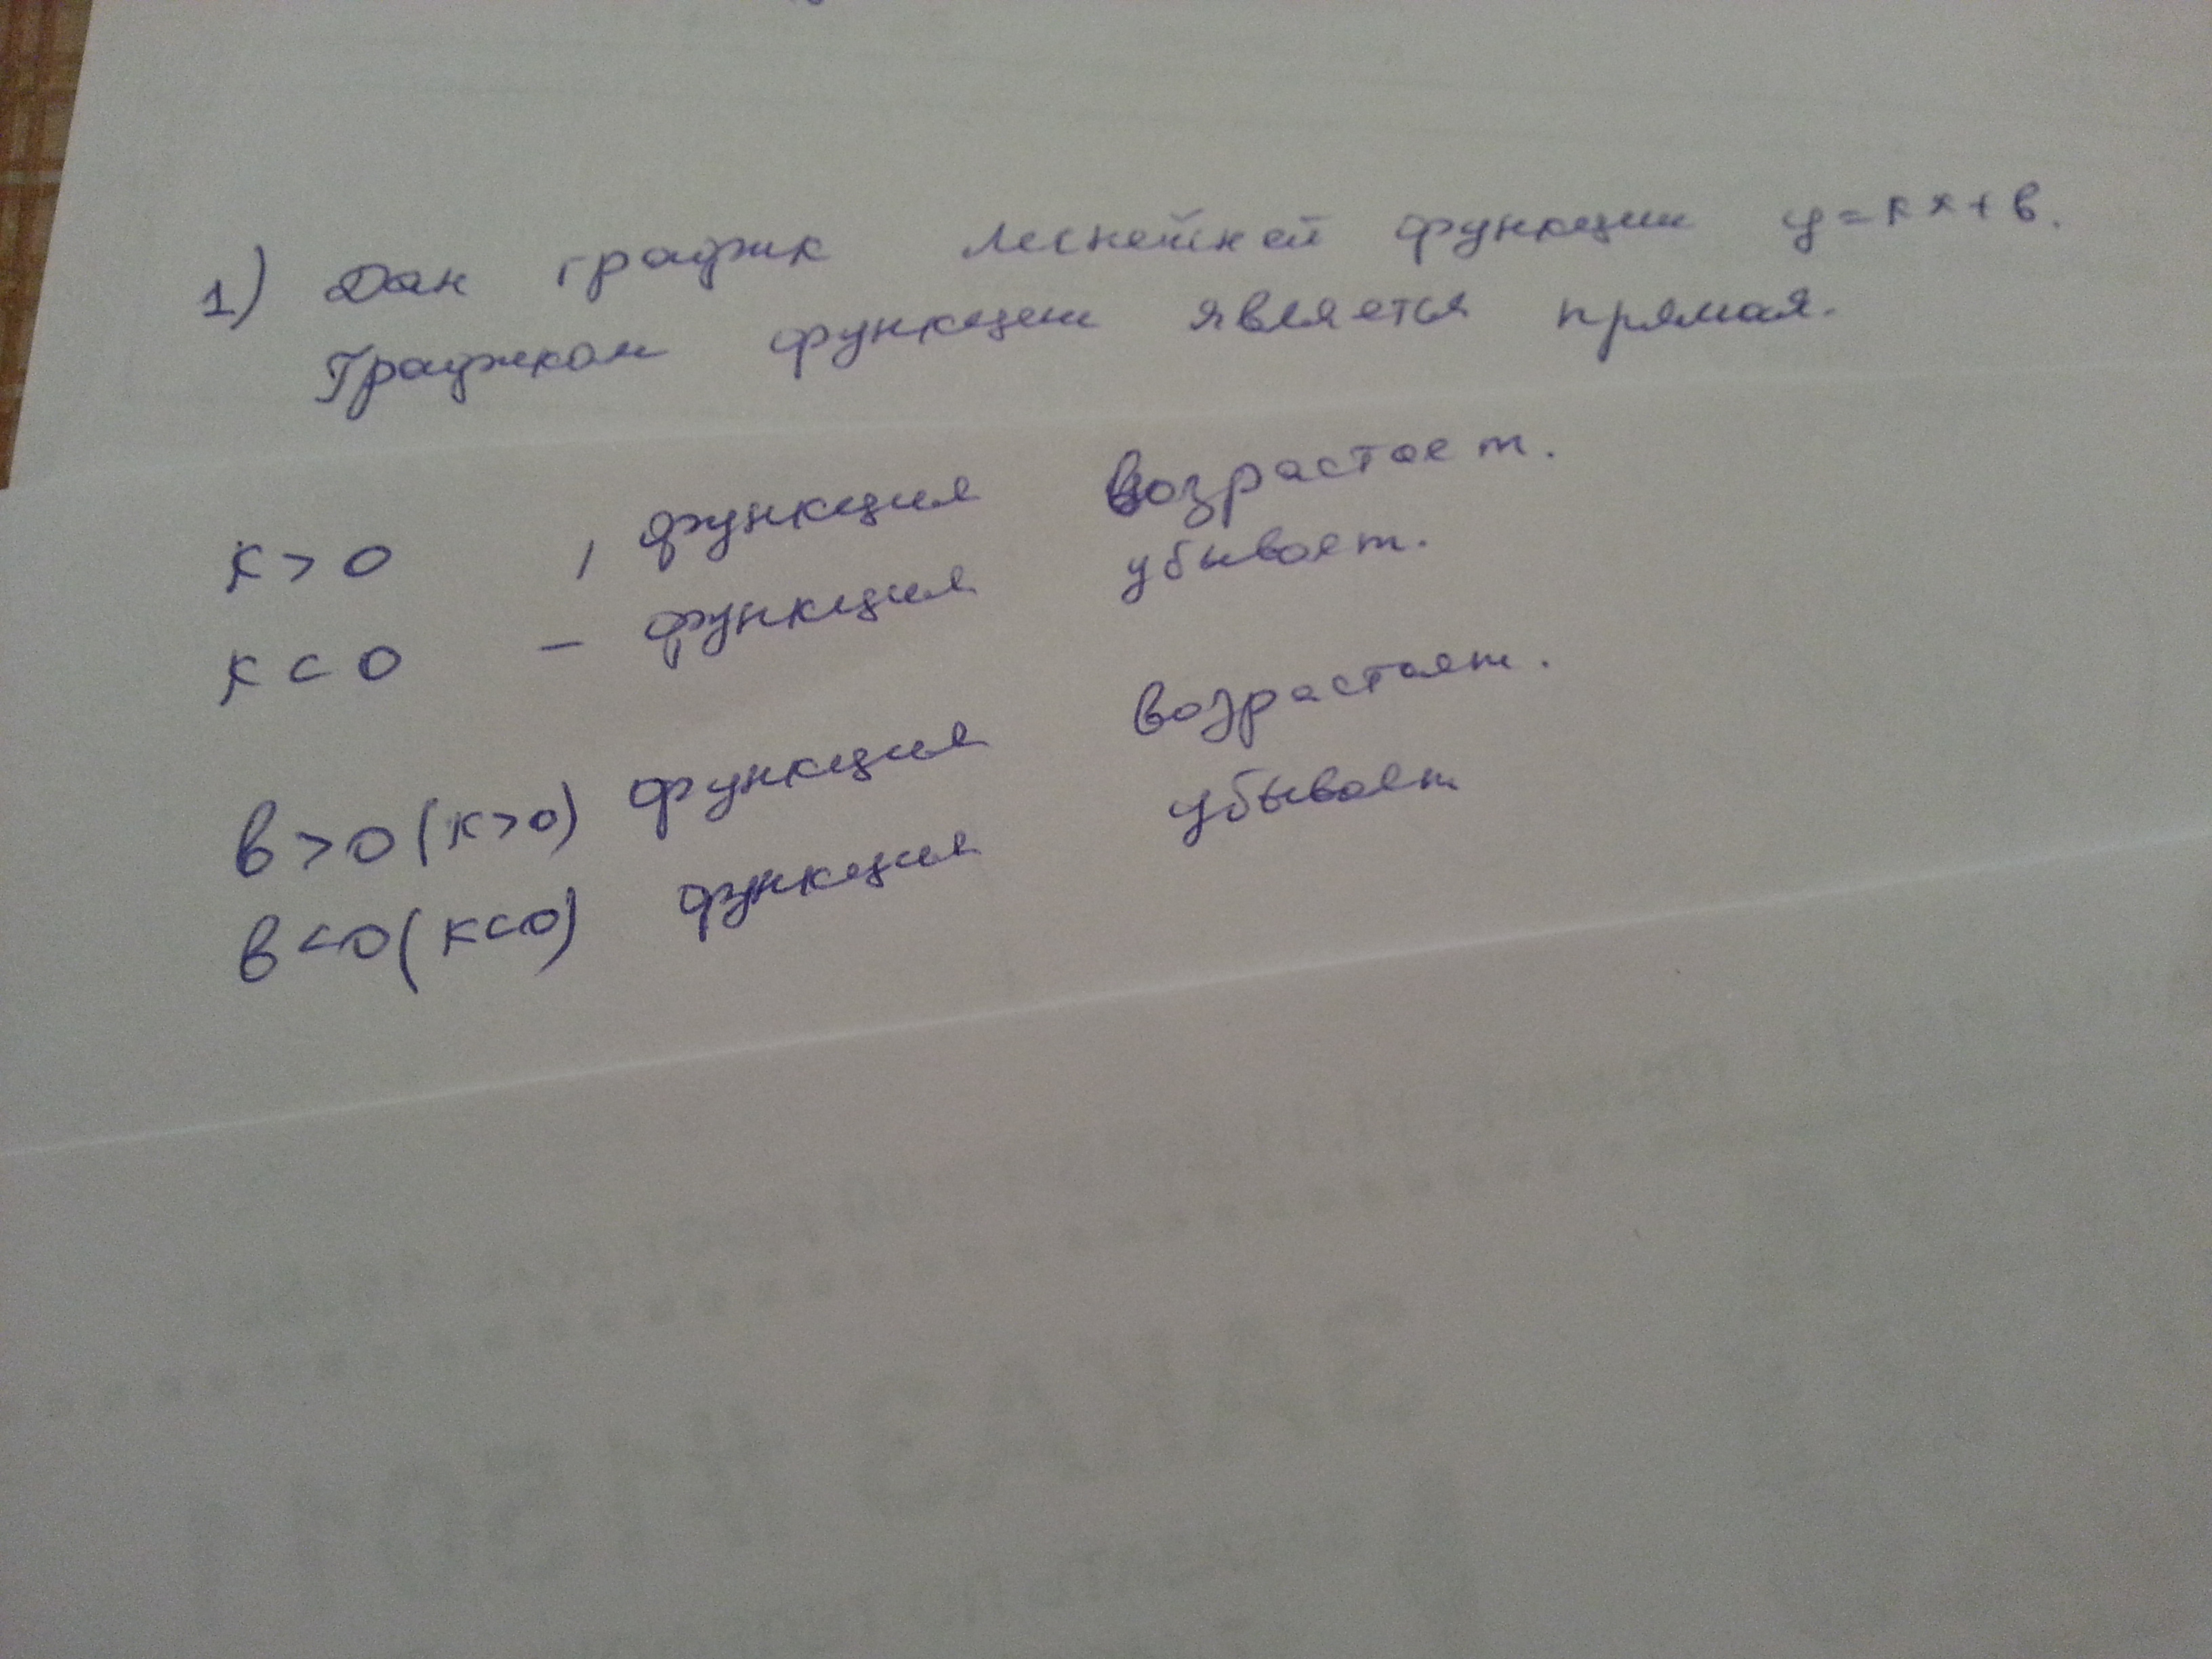 1) Дан график линейной функции y=kx+b.
Графиком функции является прямая.
k>0 , функция возрастает.
k<0 – функция убывает.
b>0(k>0) функция возрастает.
b<0(k<0) функция убывает